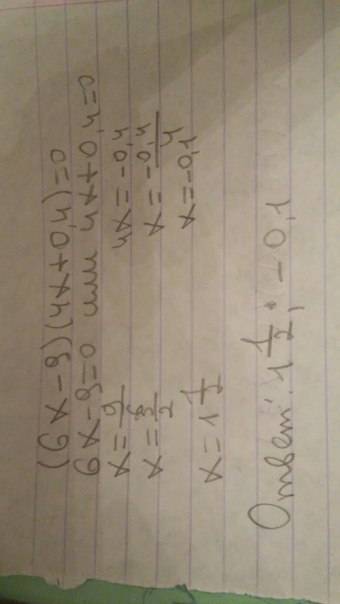 (6x-9)(4x+0,4)=0
6x-9=0 или 4x+0,4=0
x=9/6 4x=-0,4
x=3/2 x=-0,4/4
x=1 1/2 x=-0,1
Ответ: 1 1/2; -0,1